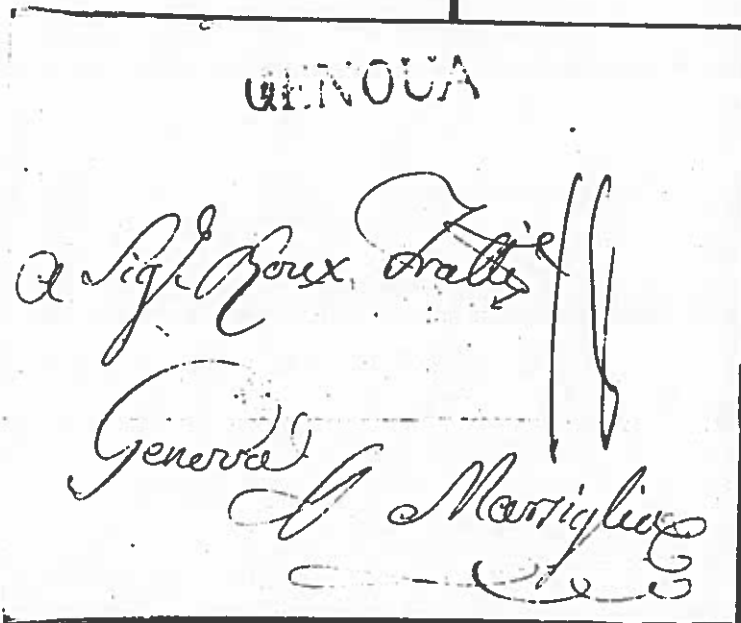 GENOUA
a Sig.ri Roux Fratelli
Genova
a Marsiglia